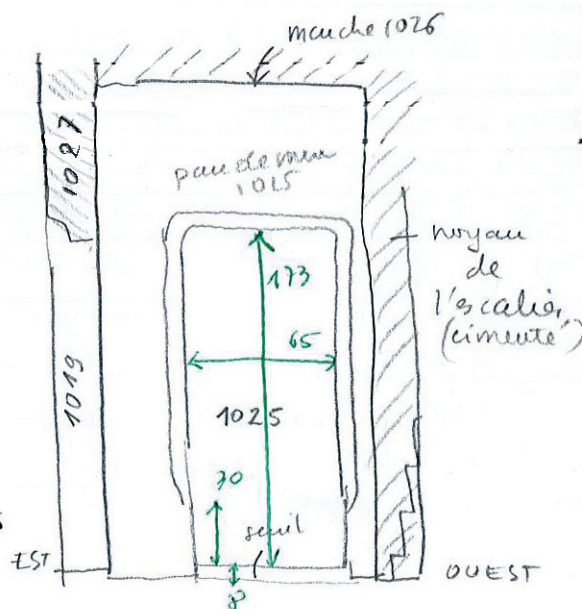 marche 1026
1027
pan de mur
1025
noyau
de
l'escalier
(cimenté)
173
65
1019
1025
30
seuil
EST
OUEST
8